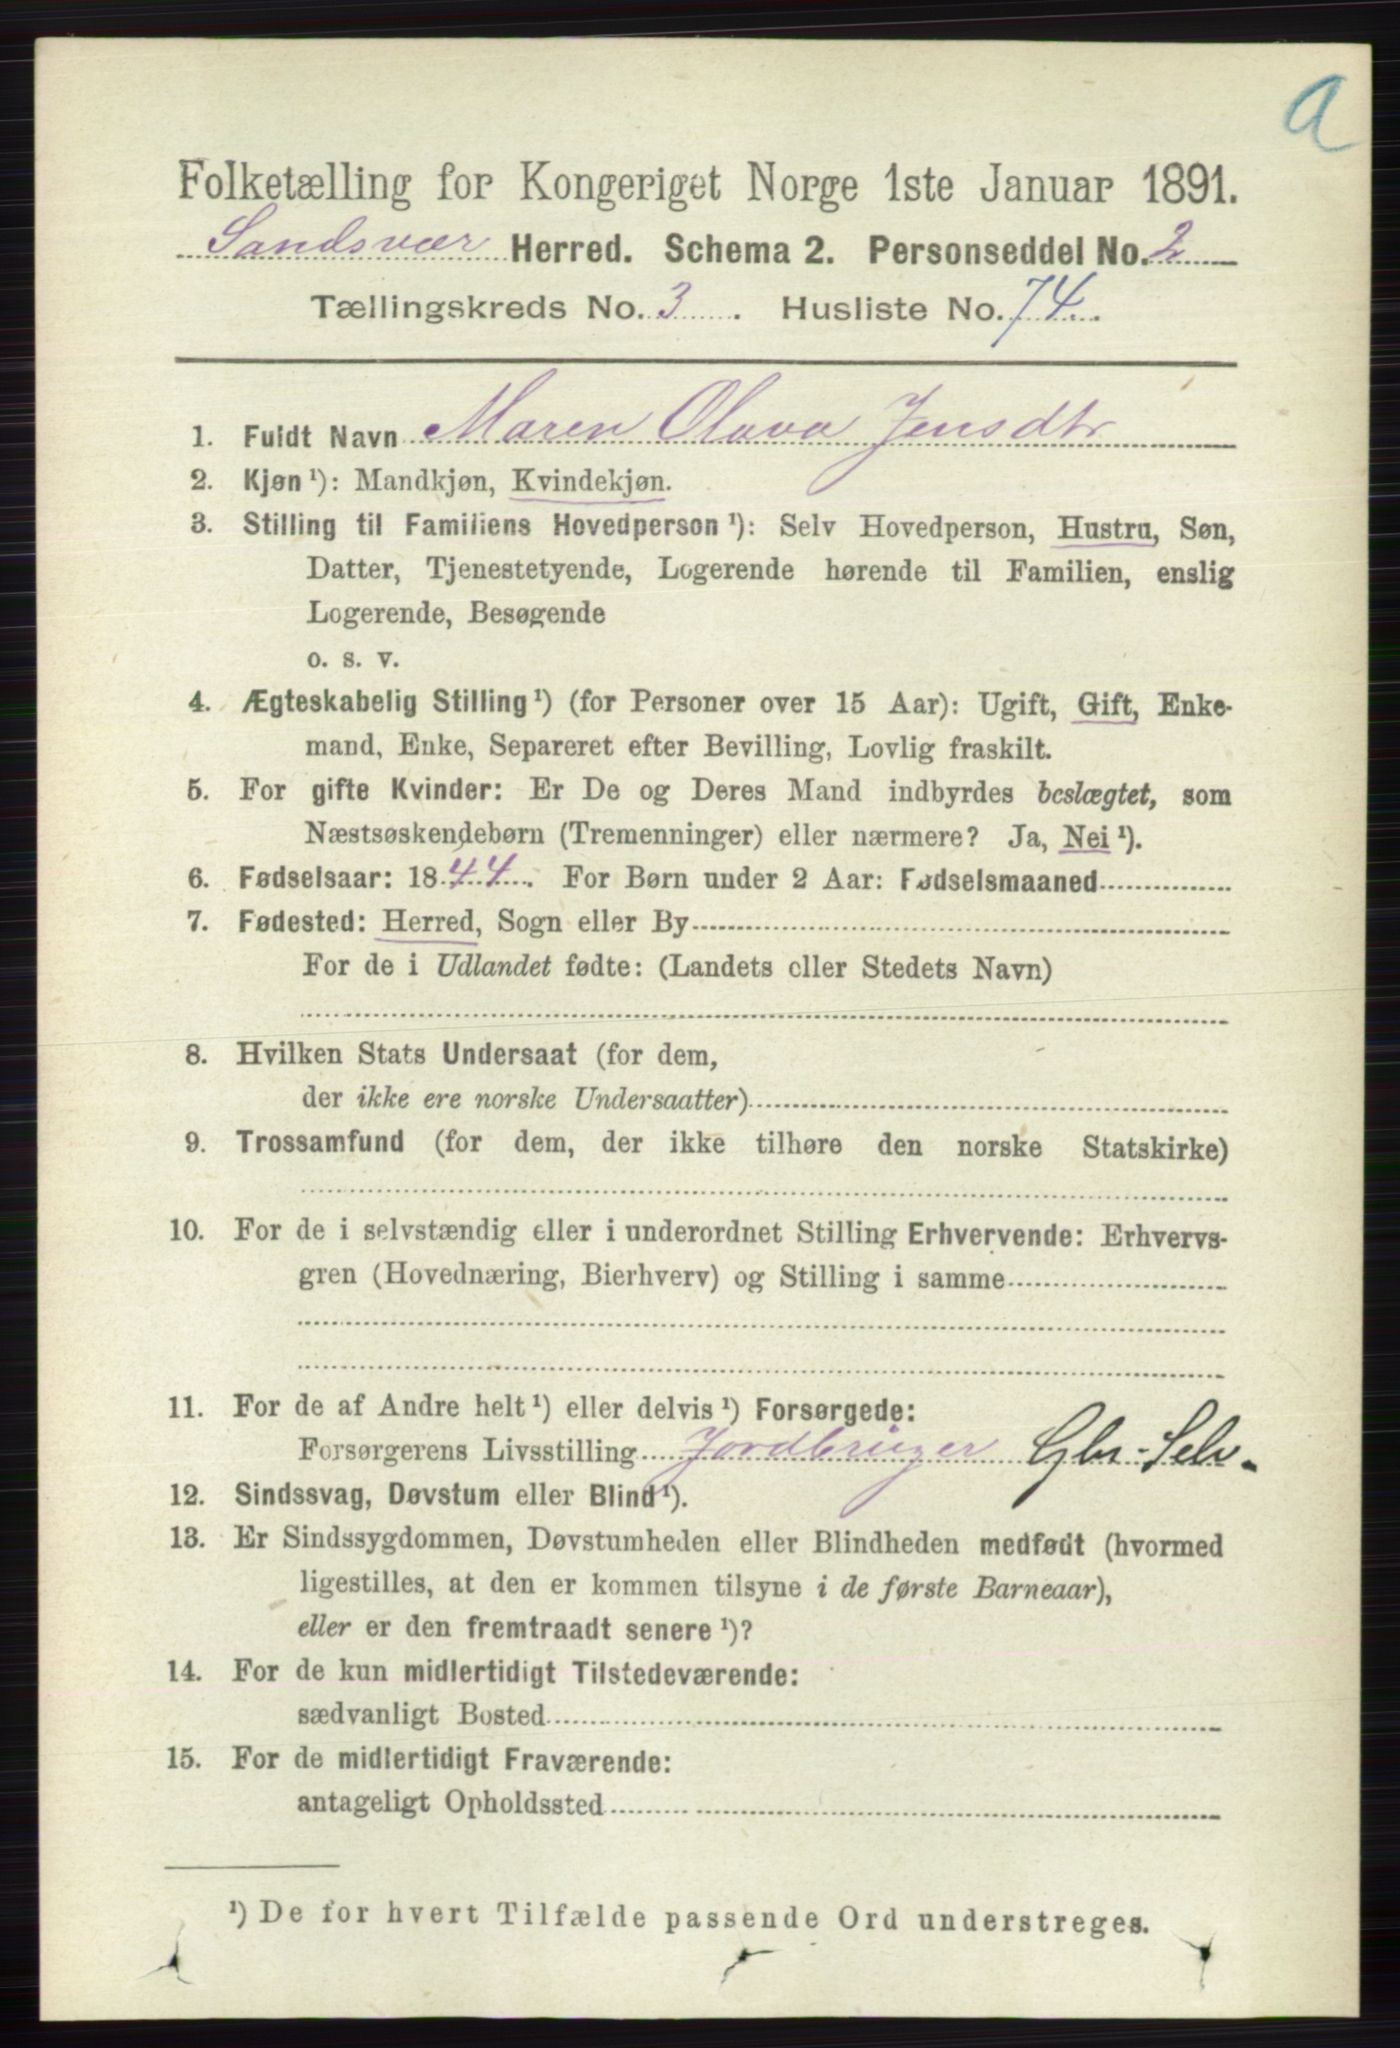 a
Folketælling for Kongeriget Norge 1ste Januar 1891.
Sandsvær Herred. Schema 2. Personseddel No. 2
Tællingskreds No. 3. Husliste No. 74.
1. Fuldt Navn Maren Olava Jensdtr
2. Kjøn ¹): Mandkjøn, Kvindekjøn.
3. Stilling til Familiens Hovedperson ¹): Selv Hovedperson, Hustru, Søn,
Datter, Tjenestetyende, Logerende hørende til Familien, enslig
Logerende, Besøgende
o. s. v.
4. Ægteskabelig Stilling ¹) (for Personer over 15 Aar): Ugift, Gift, Enke-
mand, Enke, Separeret efter Bevilling, Lovlig fraskilt.
5. For gifte Kvinder: Er De og Deres Mand indbyrdes beslægtet, som
Næstsøskendebørn (Tremenninger) eller nærmere? Ja, Nei ¹).
6. Fødselsaar: 1844. For Børn under 2 Aar: Fødselsmaaned
7. Fødested: Herred, Sogn eller By
For de i Udlandet fødte: (Landets eller Stedets Navn)
8. Hvilken Stats Undersaat (for dem,
der ikke ere norske Undersaatter)
9. Trossamfund (for dem, der ikke tilhøre den norske Statskirke)
10. For de i selvstændig eller i underordnet Stilling Erhvervende: Erhvervs-
gren (Hovednæring, Bierhverv) og Stilling i samme
11. For de af Andre helt ¹) eller delvis ¹) Forsørgede:
Forsørgerens Livsstilling Jordbruger Gbr-Selv.
12. Sindssvag, Døvstum eller Blind ¹).
13. Er Sindssygdommen, Døvstumheden eller Blindheden medfødt (hvormed
ligestilles, at den er kommen tilsyne i de første Barneaar),
eller er den fremtraadt senere ¹)?
14. For de kun midlertidigt Tilstedeværende:
sædvanligt Bosted
15. For de midlertidigt Fraværende:
antageligt Opholdssted
¹) De for hvert Tilfælde passende Ord understreges.